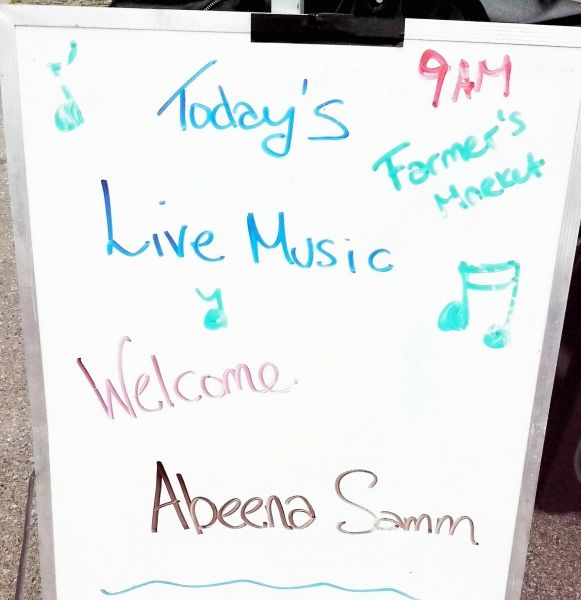 Today's
9AM
Farmer's
Mreket
Live Music
Welcome
Abeena Samm